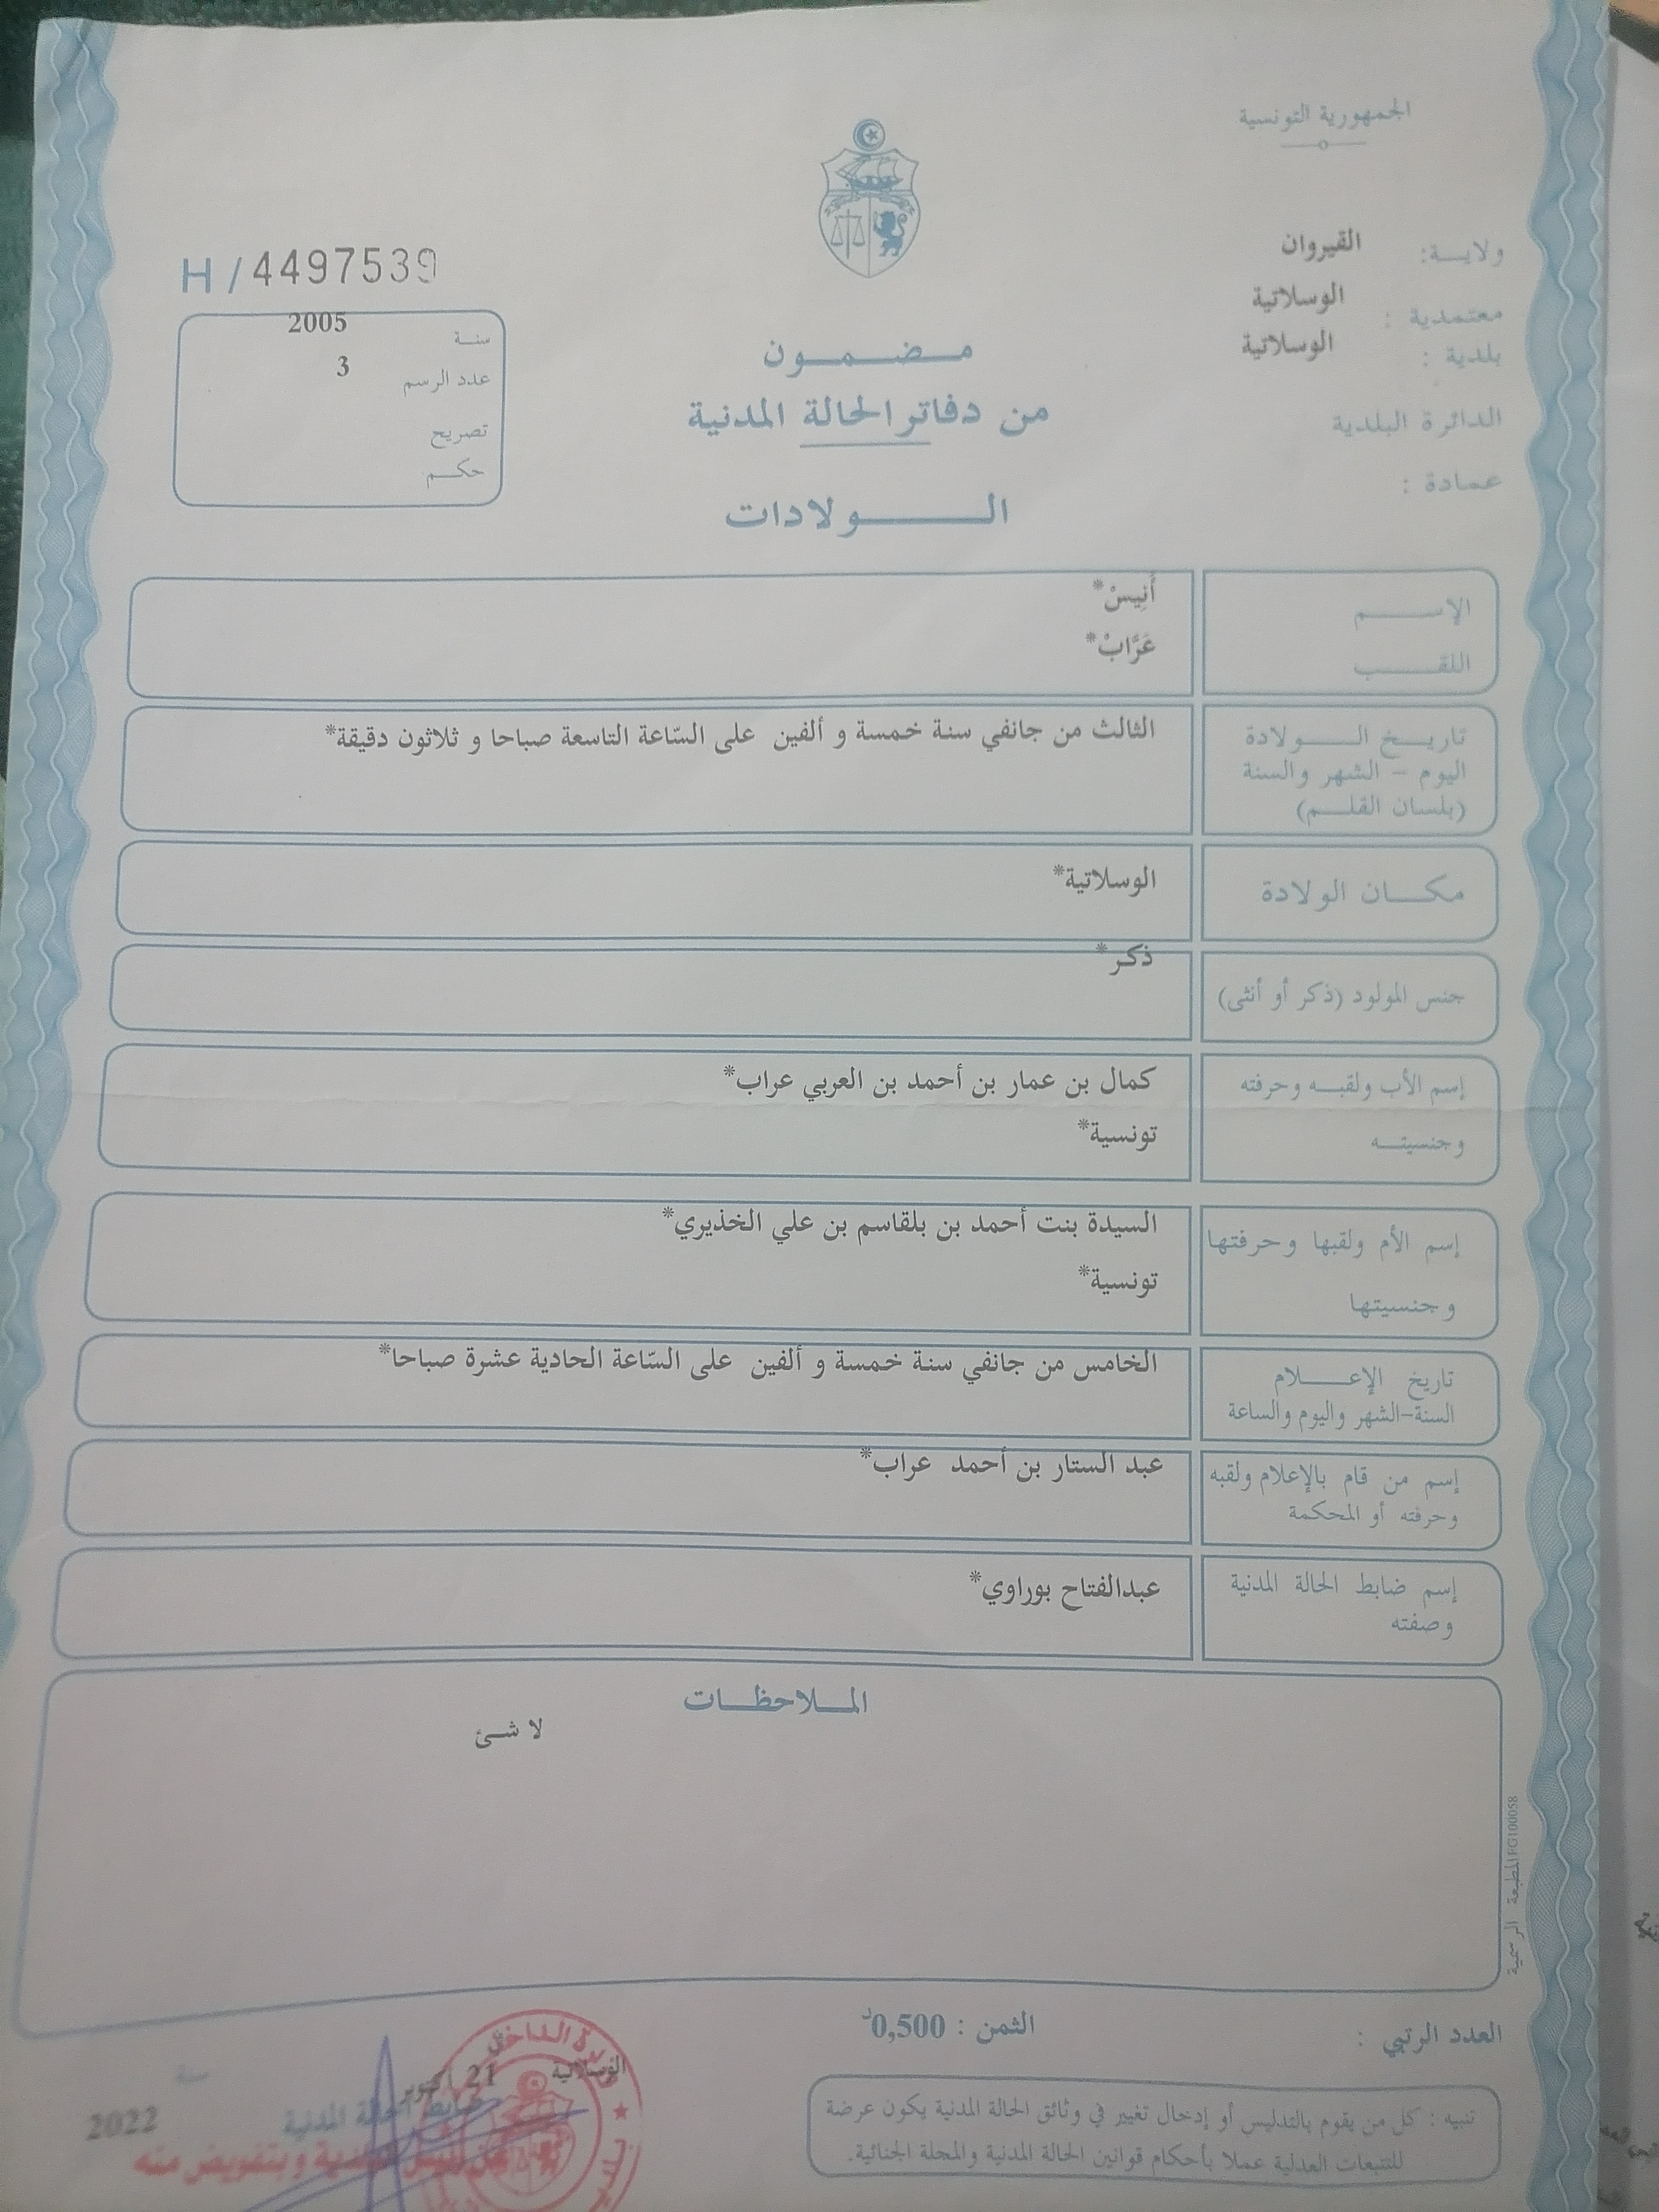 الجمهورية التونسية
ولايـة: القيروان
معتمدية : الوسلاتية
بلدية : الوسلاتية
الدائرة البلدية
عمادة :
H / 4497539
سنة 2005
عدد الرسم 3
تصريح
حكم
مضمون
من دفاتر الحالة المدنية
الولادات
الإسم أَنِيسْ*
اللقب عَرَّابْ*
تاريخ الولادة
اليوم - الشهر والسنة
(بلسان القلم)
الثالث من جانفي سنة خمسة و ألفين على السّاعة التاسعة صباحا و ثلاثون دقيقة*
مكان الولادة الوسلاتية*
جنس المولود (ذكر أو أنثى) ذكر*
إسم الأب ولقبه وحرفته كمال بن عمار بن أحمد بن العربي عراب*
وجنسيته تونسية*
إسم الأم ولقبها وحرفتها السيدة بنت أحمد بن بلقاسم بن علي الخذيري*
وجنسيتها تونسية*
تاريخ الإعلام الخامس من جانفي سنة خمسة و ألفين على السّاعة الحادية عشرة صباحا*
السنة-الشهر واليوم والساعة
إسم من قام بالإعلام ولقبه عبد الستار بن أحمد عراب*
وحرفته أو المحكمة
إسم ضابط الحالة المدنية عبدالفتاح بوراوي*
وصفته
الملاحظات
لا شئ
المطبعة الرسمية FG100058
العدد الرتبي :
الثمن : 0,500د
تنبيه : كل من يقوم بالتدليس أو إدخال تغيير في وثائق الحالة المدنية يكون عرضة
للتتبعات العدلية عملا بأحكام قوانين الحالة المدنية والمجلة الجنائية.
الوسلاتية 21 أكتوبر سنة 2022
ضابط الحالة المدنية
وبتفويض منه